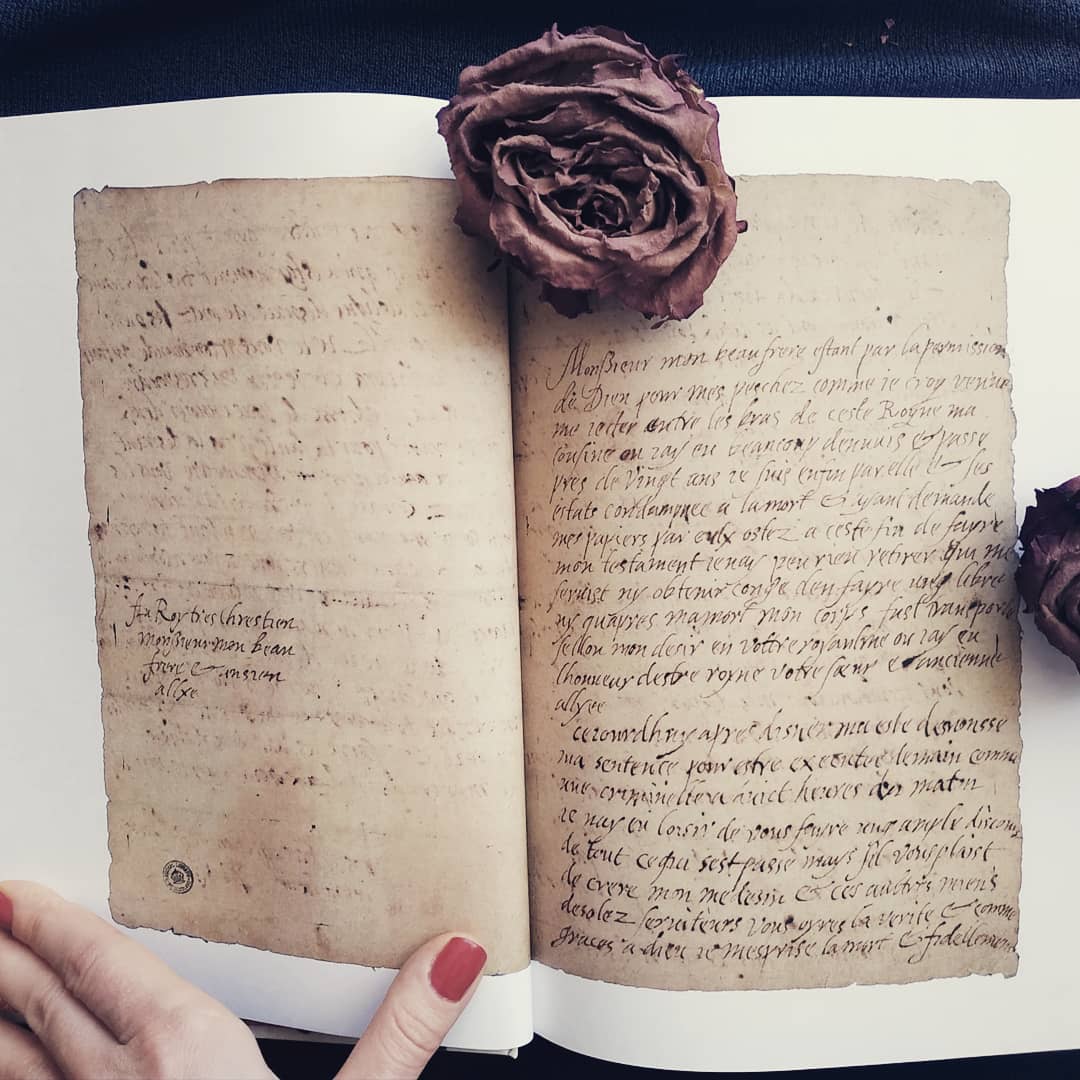 Au Roy tres chrestien
monssieur mon beau
frere & ansien
allye
Monssieur mon beau frere estant par la permission
de Dieu pour mes peschez comme ie croy venue
me iecter entre les bras de ceste Royne ma
cousine ou iay eu beaucoup dennuis & passe
pres de vingt ans ie suis enfin par elle & ses
estats condampnee a la mort & ayant demande
mes papiers par eulx ostez a ceste fin de fayre
mon testament ie nay peu rien retirer qui me
servist ny obtenir conge den fayre ung libre
ny quapres ma mort mon corps fust transporte
sellon mon desir en votre royaulme ou iay eu
lhonneur destre royne votre sœur & ancienne
allyee
ceiourdhuy apres disner ma este desnonsse
ma sentence pour estre executee demain comme
une criminelle a huict heures du matin
ie nay eu loisir de vous fayre ung ample discours
de tout ce qui sest passe mays sil vous plaist
de crere mon medesin & ces aultres miens
desolez serviteurs vous oyres la verite & comme
graces a dieu ie mesprise la mort & fidellement